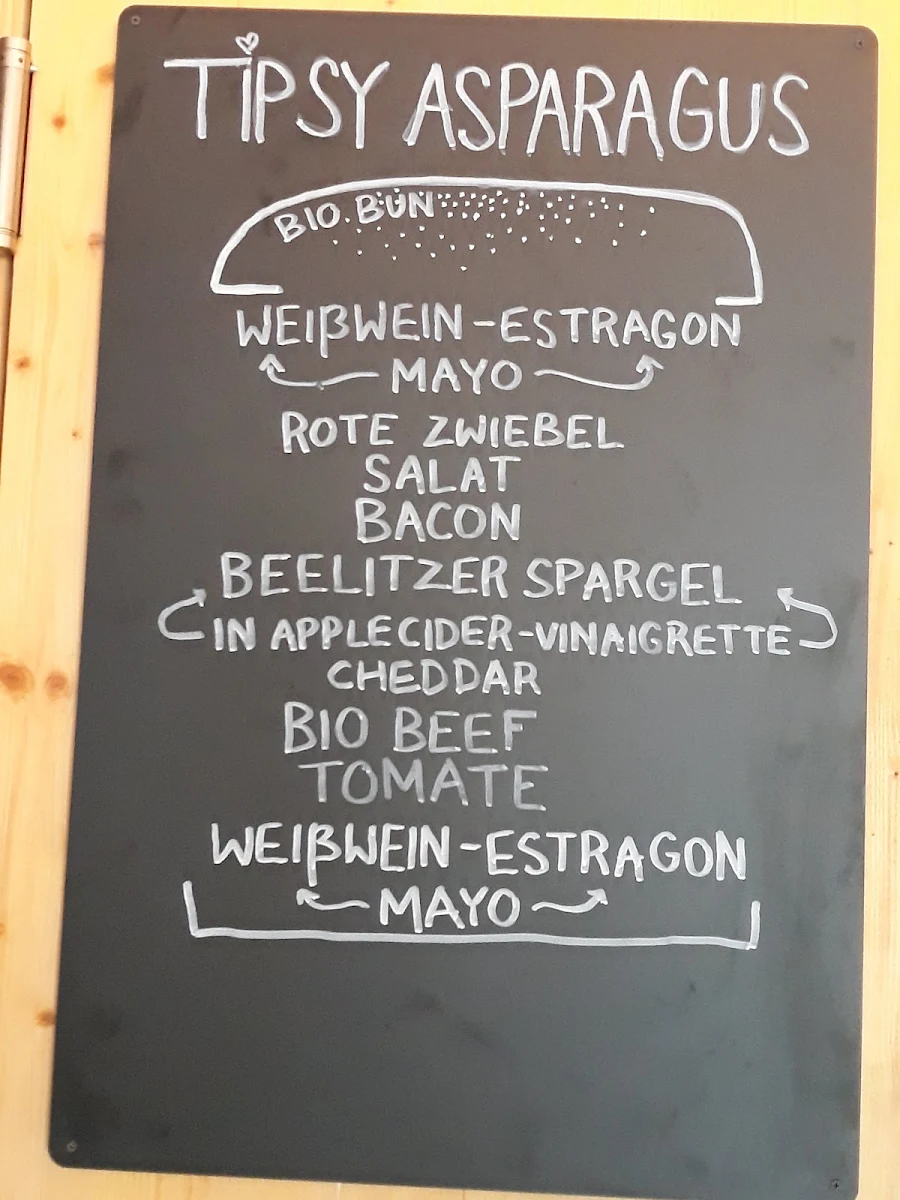 TIPSY ASPARAGUS
BIO. BUN
WEIßWEIN-ESTRAGON
MAYO
ROTE ZWIEBEL
SALAT
BACON
BEELITZER SPARGEL
IN APPLECIDER-VINAIGRETTE
CHEDDAR
BIO BEEF
TOMATE
WEIßWEIN-ESTRAGON
MAYO